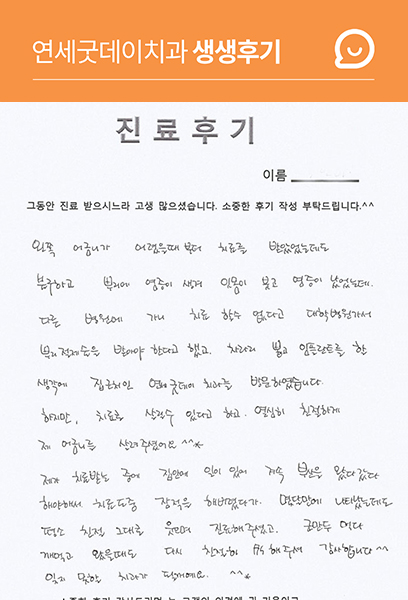 연세굿데이치과 생생후기
진료후기
이름
그동안 진료 받으시느라 고생 많으셨습니다. 소중한 후기 작성 부탁드립니다.^^
왼쪽 어금니가 어렸을때부터 치료를 받았었는데도
불구하고 뿌리에 염증이 생겨 잇몸이 붓고 염증이 났었는데.
다른 병원에 가니 치료 할수 없다고 대학병원가서
뿌리절제술을 받아야 한다고 했고. 차라리 뽑고 임플란트를 한
생각에 집근처인 연세굿데이 치과를 방문하였습니다.
하지만, 치료를 살릴수 있다고 하고. 열심히 친절하게
제 어금니를 살려주셨어요^^*
제가 치료받는 중에 집안에 일이 있어 계속 부산을 왔다갔다
해야해서 치료도중 장적을 해버렸다가. 몇달만에 나타났는데도
평소 친절 그대로 웃으며 진료해주셨고. 군만두 먹다
깨먹고 왔을때도 다시 친절히 해주셔 감사합니다^^
잊지 못할 치과가 될거예요. ^^*